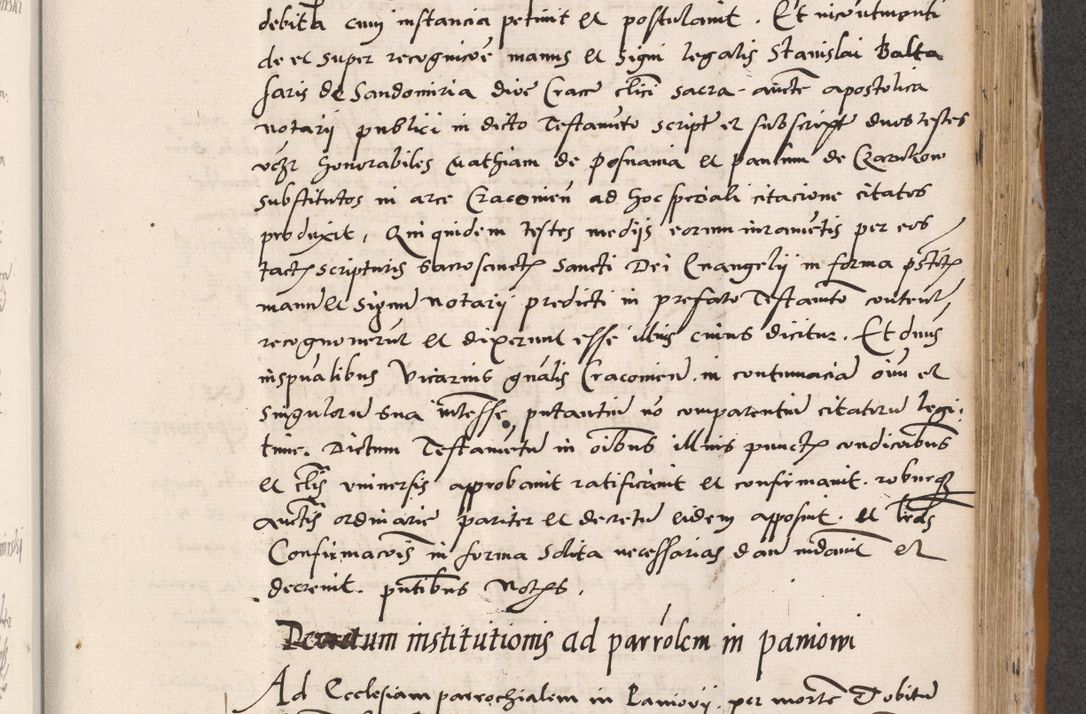 debita cum instancia petiuit et postulauit. Et incontinenti
de et super recognicõe manus et signi legalis Stanislai Balta
saris de Sandomiria dioc Cracc clici sacra auctẽ apostolica
notarij publici in dicto Testamẽto script et subscript duos testes
vczr honorabiles Mathiam de Posnania et Paulum de Czarnkow
substitutos in arce Cracouien ad hoc speciali citacione citatos
produxit, Qui quidem testes medijs eorum iuramẽtis per eos
tactis scripturis sacrosanctis Sancti Dei Euangelij in forma pstitis
manũ et signũ notarij predicti in prefato Testamẽto content
recognouerũt et dixerunt esse illius cuius dicitur. Et dnus
inspũalibus Vicarius gnãlis Cracouien. in contumaciã oĩu et
singulorũ sua intesse, putantiũ nõ comparentiũ citatorũ legi:
time. Dictum Testamẽtũ in oĩbus illius punctis condicõibus
et clis vniuersis approbauit ratificauit et confirmauit. roburq
auctis ordinarie pariter et decretũ eidem apposuit. et lras
Confirmacõis in forma solita necessarias dari mdauit et
decreuit. pntibus Notis.
Decretum institutionis ad parrolem in paniowi
Ad Ecclesiam parrochialem in Paniovy. per mortẽ Dobitũ